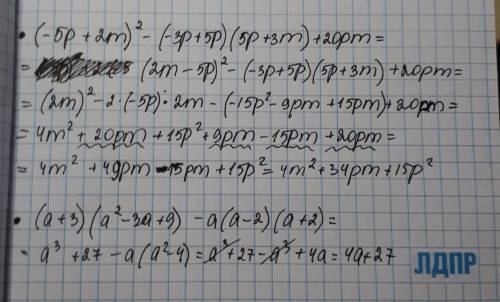 • (-5p + 2m)² - (-3p + 5p) (5p + 3m) + 20pm =
= (2m - 5p)² - (-3p + 5p) (5p + 3m) + 20pm =
= (2m)² - 2 · (-5p) · 2m - (-15p² - 9pm + 15pm) + 20pm =
= 4m² + 20pm + 15p² + 9pm - 15pm + 20pm =
= 4m² + 49pm - 15pm + 15p² = 4m² + 34pm + 15p²
• (a + 3) (a² - 3a + 9) - a (a - 2) (a + 2) =
= a³ + 27 - a (a² - 4) = a³ + 27 - a³ + 4a = 4a + 27
ЛДПР